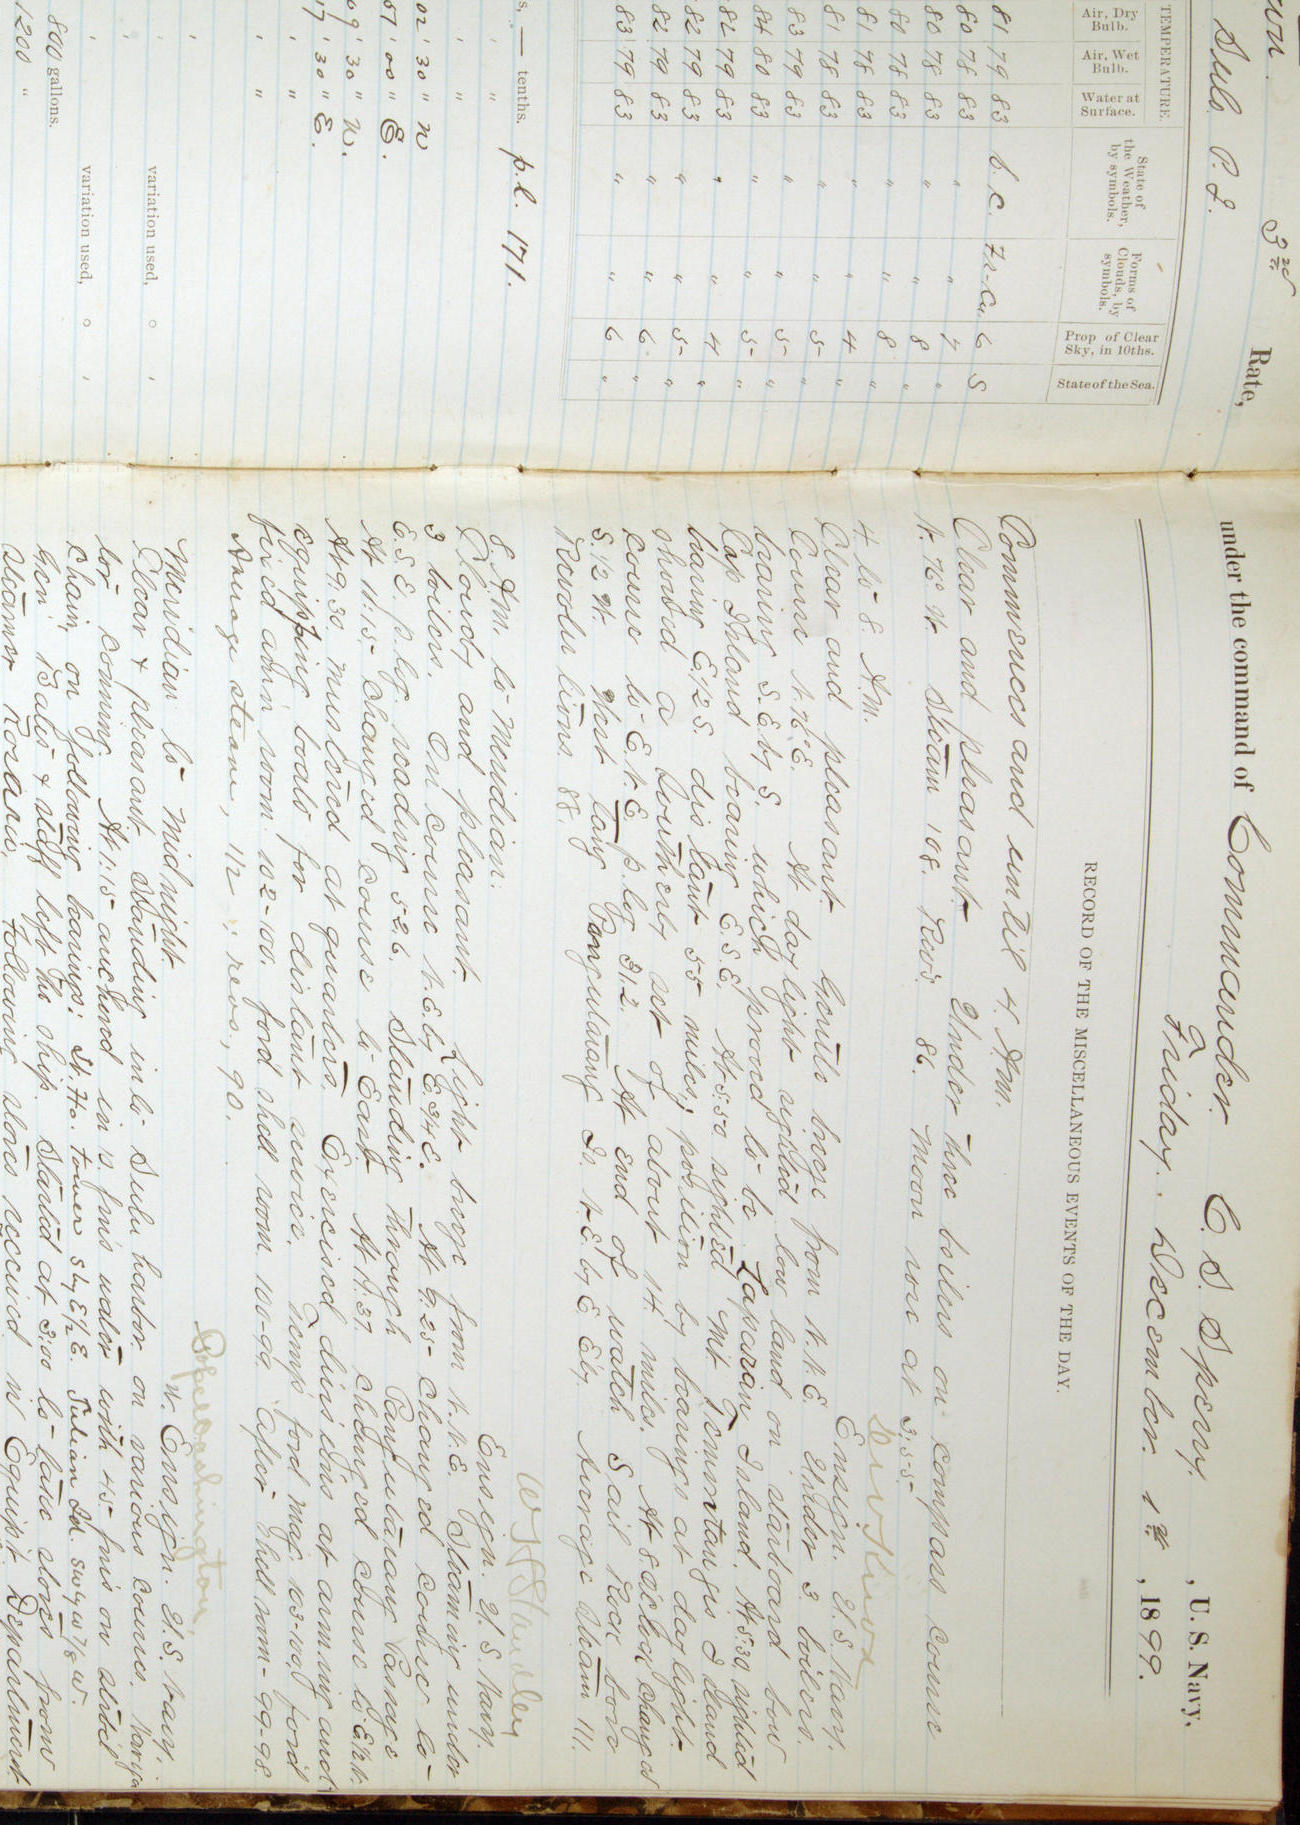 3rd Rate,
Sulu P. I.
TEMPERATURE.
Air, Dry Bulb.
Air, Wet Bulb.
Water at Surface.
State of the Weather, by symbols.
Forms of Clouds, by symbols.
Prop of Clear Sky, in 10ths.
State of the Sea.
81 79 83 b. c. Fr-Cu. 6 S
80 78 83 " " 7 "
80 78 83 " " 8 "
80 78 83 " " 8 "
81 78 83 " " 4 "
81 78 83 " " 5 "
83 79 83 " " 5 "
84 80 83 " " 5 "
82 79 83 " " 4 "
82 79 83 " " 5 "
82 79 83 " " 6 "
83 79 83 " " 6 "
s, — tenths. p.l. 171.
02 ' 30 " N
51 ' 00 " E.
09 ' 30 " N.
17 ' 30 " E.
variation used, ° '
variation used, ° '
800 gallons.
1200 "
under the command of Commander C. S. Sperry, U. S. Navy,
Friday, December 1st, 1899.
RECORD OF THE MISCELLANEOUS EVENTS OF THE DAY.
Commences and until 4. A.m.
Clear and pleasant. Under three boilers on compass course
N. 76 W. Steam 108. Rev's. 86. Moon rose at 3:55
Ensign. U. S. Navy.
4 to 8. A.m.
Clear and pleasant. Gentle breeze from N. N. E. Under 3 boilers.
Course At daylight sighted low land on starboard bow
bearing S. E. by S. which proved to be Laparan Island. At 5:30 sighted
Cap Island bearing E. S. E. At 5:50 sighted Mt Island
bearing E. 1/2 S. distant 55 miles; position by bearings at daylight
showed a southerly set of about 14 miles. At 8. o'clock changed
course to E. N. E. p.log 31.2. At end of watch Sail Rock bore
S. 1/2 W. West Tong Is. N. E. by E. Average Steam 111.
Revolutions. 88.
W H Standley
Ensign. U. S. Navy.
8. A.m. to Meridian.
Cloudy and pleasant. Light breeze from N. N. E. Steaming under
3 boilers. On course N. E. by E. 3/4 E. At 9:25 changed course to
E. S. E. p. log. reading 52.6. Standing through Pangutarang Passage
At 11:15 changed course to East. At 11:37 changed course to
At 9:30 mustered at quarters. Exercised divisions at arming and
equipping boats for distant service. Temps ford mag. 103-100, ford
fixed amn room. 102-100. ford shell room 100-99. After shell room - 99-98.
Average steam, 112 ; revs, 90.
Pope Washington,
N. Ensign. U. S. Navy.
Meridian to midnight.
Clear & pleasant. Standing in to Sulu harbor on various courses.
for coming. At 1:15 anchored in 13 fm's water with 45 fm's on
chain, on following bearings; Lt. Ho. Tower S by E 1/2 E. Tulian Id. SW by W 7/8 W.
Gen'l Bates & staff left the ship. Started at 3:00 to take stores from
steamer following stores received in Equip't Department